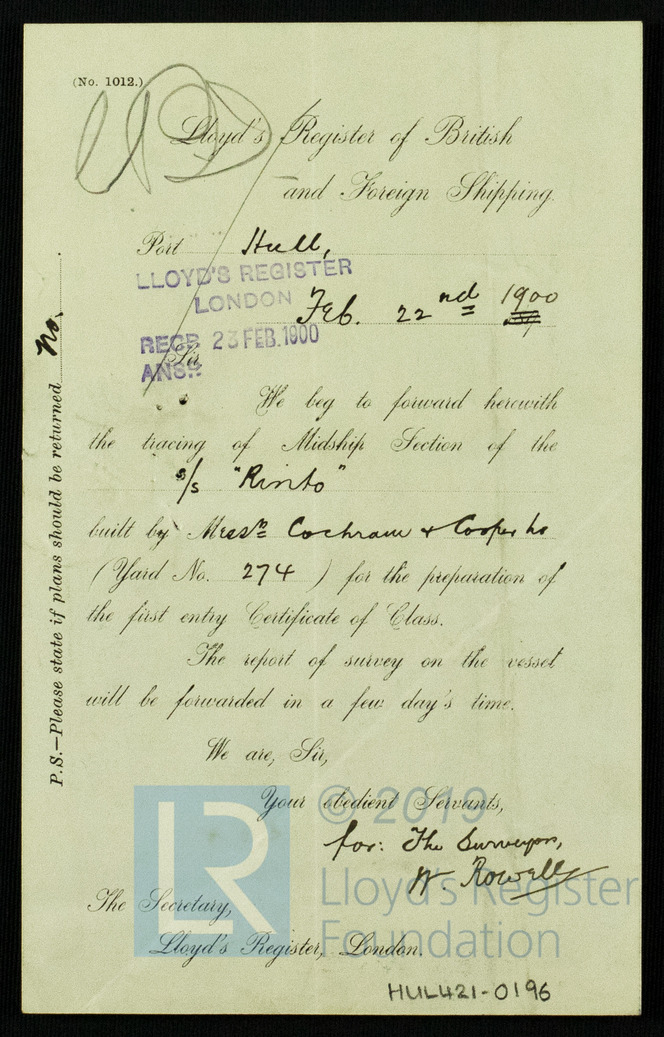 (No. 1012.)
Lloyd's Register of British
and Foreign Shipping.
Port Hull,
LLOYD'S REGISTER
LONDON
Feb. 22nd 1900
RECD 23 FEB. 1900
ANSD
Sir
We beg to forward herewith
the tracing of Midship Section of the
s/s "Rinto"
built by Messrs Cochrane & Cooper Ld
(Yard No. 274) for the preparation of
the first entry Certificate of Class.
The report of survey on the vessel
will be forwarded in a few day's time.
We are, Sir,
Your obedient Servants,
for: The Surveyors,
W. Rowell
The Secretary,
Lloyd's Register, London.
P.S.—Please state if plans should be returned No.
LR
© 2019
Lloyd's Register
Foundation
HUL421-0196